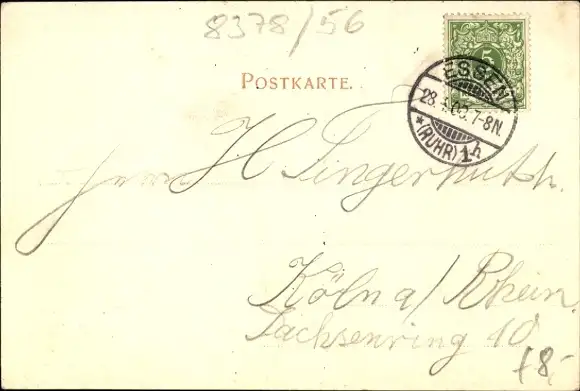 8378/56
POSTKARTE.
5
ESSEN
28. 00. 7-8N.
*(RUHR) 1h
Herrn H Fingerhuth.
Köln a/ Rhein.
Sachsenring 40